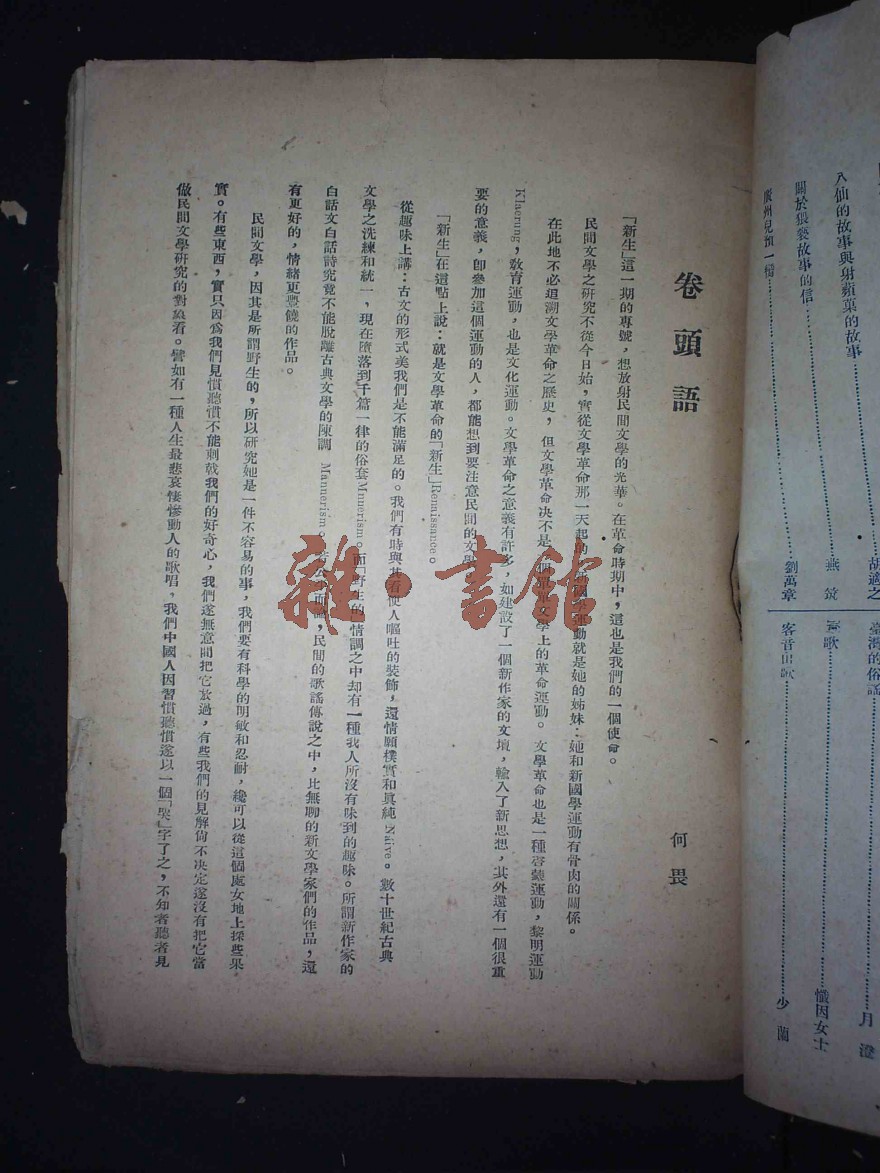 八仙的故事與射蘋菓的故事……燕筑
關於猥褻故事的信……劉萬章
廣州兒預一檔……
胡適之
臺灣的俗謠……月澄
歌……懺因女士
客音……少蘭
卷頭語
何畏
「新生」這一期的專號，想放射民間文學的光華。在革命時期中，這也是我們的一個使命。
民間文學之研究不從今日始，實從文學革命那一天起的。新國學運動就是她的姊妹：她和新國學運動有骨肉的關係。
在此地不必追溯文學革命之歷史，但文學革命決不是一個單是文學上的革命運動。文學革命也是一種啓蒙運動，黎明運動
Klaerung，敎育運動，也是文化運動。文學革命之意義有許多，如建設了一個新作家的文壇，輸入了新思想，其外還有一個很重
要的意義，卽參加這個運動的人，都能想到要注意民間的文學
「新生」在這點上說：就是文學革命的「新生」Renaissance。
從趣味上講：古文的形式美我們是不能滿足的。我們有時與其看使人嘔吐的裝飾，還情願樸實和眞純 Naive。數十世紀古典
文學之洗練和統一，現在墮落到千篇一律的俗套Mnuerism。而「野生的」情調之中却有一種我人所沒有味到的趣味。所謂新作家的
白話文白話詩究竟不能脫離古典文學的陳調 Mannerism。若公平而論，民間的歌謠傳說之中，比無聊的新文學家們的作品，還
有更好的，情緒更豐饒的作品。
民間文學，因其是所謂野生的，所以研究她是一件不容易的事，我們要有科學的明敏和忍耐，纔可以從這個處女地上採些果
實。有些東西，實只因爲我們見慣聽慣不能刺戟我們的好奇心，我們遂無意間把它放過，有些我們的見解尙不决定遂沒有把它當
做民間文學研究的對象看。譬如有一種人生最悲哀悽慘動人的歌唱，我們中國人因習慣聽慣遂以一個「哭」字了之，不知者聽者見
雜·書館